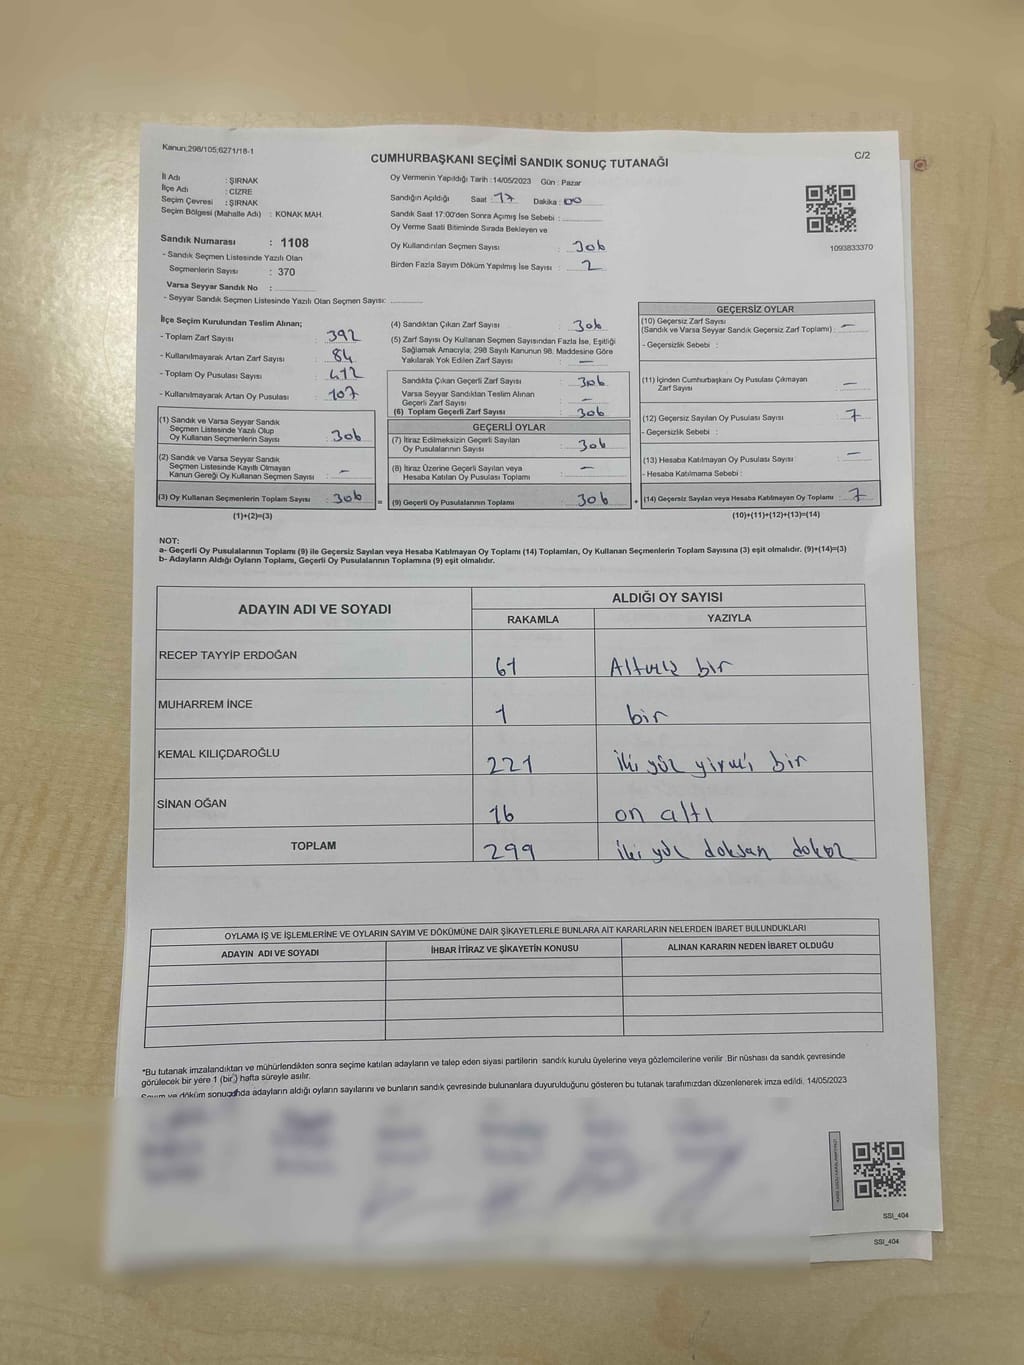 Kanun;298/105;6271/18-1
C/2
CUMHURBAŞKANI SEÇİMİ SANDIK SONUÇ TUTANAĞI
İl Adı : ŞIRNAK
İlçe Adı : CİZRE
Seçim Çevresi : ŞIRNAK
Seçim Bölgesi (Mahalle Adı) : KONAK MAH.
Sandık Numarası : 1108
- Sandık Seçmen Listesinde Yazılı Olan
Seçmenlerin Sayısı : 370
Varsa Seyyar Sandık No :
- Seyyar Sandık Seçmen Listesinde Yazılı Olan Seçmen Sayısı:
Oy Vermenin Yapıldığı Tarih : 14/05/2023 Gün : Pazar
Sandığın Açıldığı Saat : 17 Dakika : 00
Sandık Saat 17:00'den Sonra Açımış İse Sebebi :
Oy Verme Saati Bitiminde Sırada Bekleyen ve
Oy Kullandırılan Seçmen Sayısı : 306
Birden Fazla Sayım Döküm Yapılmış İse Sayısı : 2
1093833370
İlçe Seçim Kurulundan Teslim Alınan;
- Toplam Zarf Sayısı : 392
- Kullanılmayarak Artan Zarf Sayısı : 84
- Toplam Oy Pusulası Sayısı : 412
- Kullanılmayarak Artan Oy Pusulası : 107
(1) Sandık ve Varsa Seyyar Sandık
Seçmen Listesinde Yazılı Olup
Oy Kullanan Seçmenlerin Sayısı : 306
(2) Sandık ve Varsa Seyyar Sandık
Seçmen Listesinde Kayıtlı Olmayan
Kanun Gereği Oy Kullanan Seçmen Sayısı : –
(3) Oy Kullanan Seçmenlerin Toplam Sayısı : 306
(1)+(2)=(3)
(4) Sandıktan Çıkan Zarf Sayısı : 306
(5) Zarf Sayısı Oy Kullanan Seçmen Sayısından Fazla İse, Eşitliği
Sağlamak Amacıyla; 298 Sayılı Kanunun 98. Maddesine Göre
Yakılarak Yok Edilen Zarf Sayısı : –
Sandıkta Çıkan Geçerli Zarf Sayısı : 306
Varsa Seyyar Sandıktan Teslim Alınan
Geçerli Zarf Sayısı : –
(6) Toplam Geçerli Zarf Sayısı : 306
GEÇERLİ OYLAR
(7) İtiraz Edilmeksizin Geçerli Sayılan
Oy Pusulalarının Sayısı : 306
(8) İtiraz Üzerine Geçerli Sayılan veya
Hesaba Katılan Oy Pusulası Toplamı : –
= (9) Geçerli Oy Pusulalarının Toplamı : 306 +
GEÇERSİZ OYLAR
(10) Geçersiz Zarf Sayısı
(Sandık ve Varsa Seyyar Sandık Geçersiz Zarf Toplamı) : –
- Geçersizlik Sebebi :
(11) İçinden Cumhurbaşkanı Oy Pusulası Çıkmayan
Zarf Sayısı : –
(12) Geçersiz Sayılan Oy Pusulası Sayısı : 7
- Geçersizlik Sebebi :
(13) Hesaba Katılmayan Oy Pusulası Sayısı : –
- Hesaba Katılmama Sebebi :
(14) Geçersiz Sayılan veya Hesaba Katılmayan Oy Toplamı : 7
(10)+(11)+(12)+(13)=(14)
NOT:
a- Geçerli Oy Pusulalarının Toplamı (9) ile Geçersiz Sayılan veya Hesaba Katılmayan Oy Toplamı (14) Toplamları, Oy Kullanan Seçmenlerin Toplam Sayısına (3) eşit olmalıdır. (9)+(14)=(3)
b- Adayların Aldığı Oyların Toplamı, Geçerli Oy Pusulalarının Toplamına (9) eşit olmalıdır.
ADAYIN ADI VE SOYADI ALDIĞI OY SAYISI
RAKAMLA YAZIYLA
RECEP TAYYİP ERDOĞAN 61 Altmış bir
MUHARREM İNCE 1 bir
KEMAL KILIÇDAROĞLU 221 iki yüz yirmi bir
SİNAN OĞAN 16 on altı
TOPLAM 299 iki yüz doksan dokuz
OYLAMA İŞ VE İŞLEMLERİNE VE OYLARIN SAYIM VE DÖKÜMÜNE DAİR ŞİKAYETLERLE BUNLARA AİT KARARLARIN NELERDEN İBARET BULUNDUKLARI
ADAYIN ADI VE SOYADI İHBAR İTİRAZ VE ŞİKAYETİN KONUSU ALINAN KARARIN NEDEN İBARET OLDUĞU
*Bu tutanak imzalandıktan ve mühürlendikten sonra seçime katılan adayların ve talep eden siyasi partilerin sandık kurulu üyelerine veya gözlemcilerine verilir .Bir nüshası da sandık çevresinde
görülecek bir yere 1 (bir) hafta süreyle asılır.
Sayım ve döküm sonucunda adayların aldığı oyların sayılarını ve bunların sandık çevresinde bulunanlara duyurulduğunu gösteren bu tutanak tarafımızdan düzenlenerek imza edildi. 14/05/2023
SSI_404
SSI_404